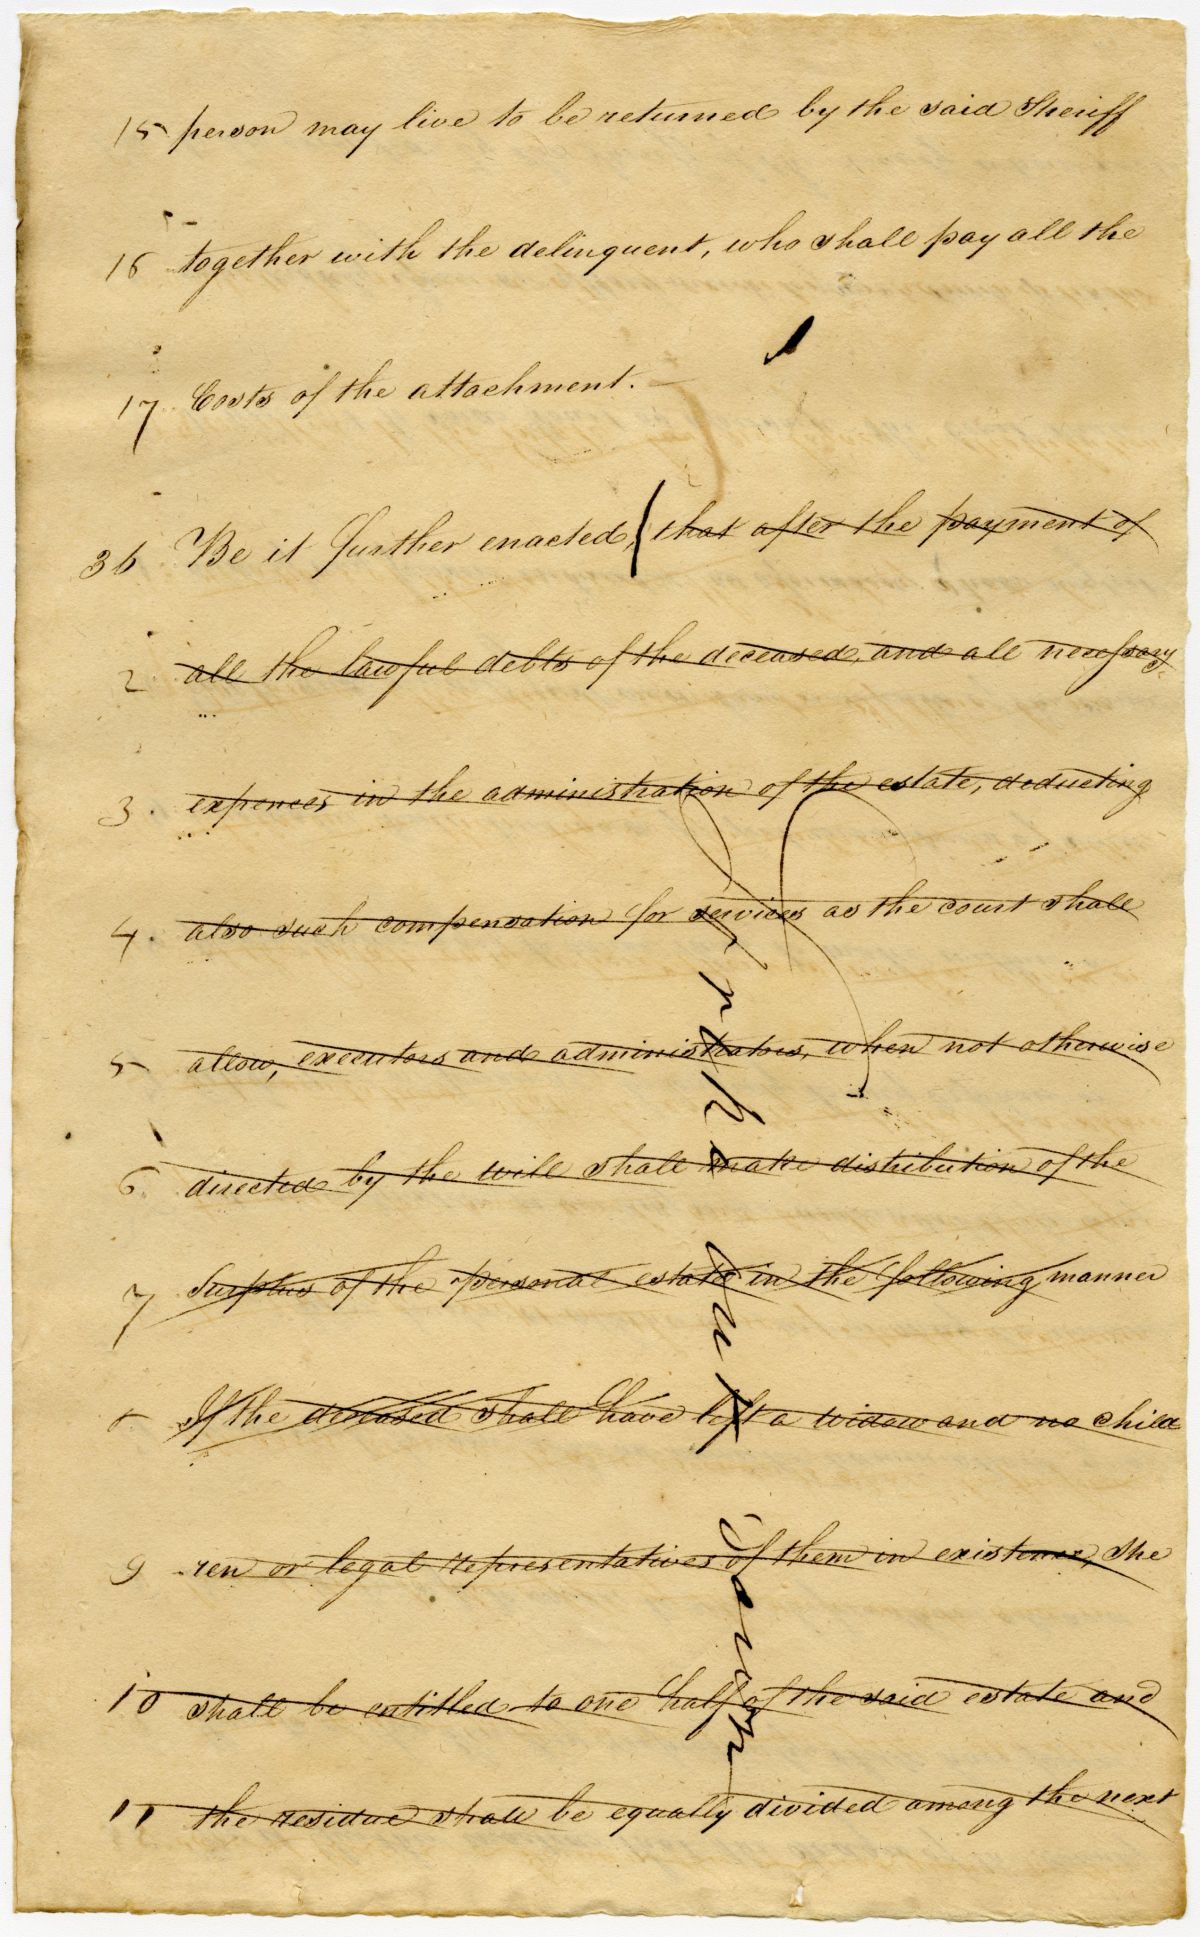 15 person may live to be returned by the said Sheriff
16 together with the delinquent, who shall pay all the
17 Costs of the attachment.
36 Be it further enacted, (that after the payment of
2 all the lawful debts of the deceased, and all necessary
3. expences in the administration of the estate, deducting
4. also such compensation for services as the court shall
5 allow, executors and administrators, when not otherwise
6 directed by the will shall make distribution of the
7 Surplus of the personal estate in the following manner
8 If the deceased shall have left a widow and no child
9 ren or legal representatives of them in existence, she
10 shall be entitled to one half of the said estate and
11 the residue shall be equally divided among the next